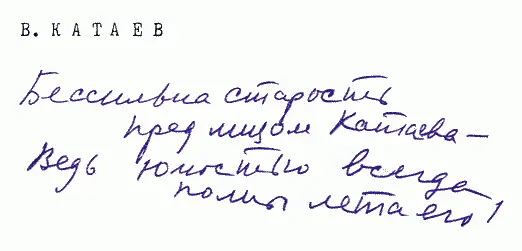 В. КАТАЕВ
Бессильна старость
пред лицом Катаева—
Ведь юностью всегда
полны лета его!